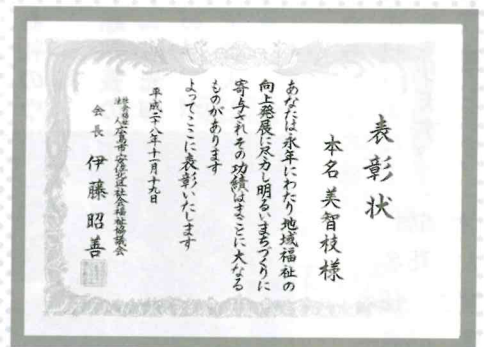 表彰状
本名美智枝様
あなたは永年にわたり地域福祉の
向上発展に尽力し明るいまちづくりに
寄与されその功績はまことに大なる
ものがあります
よってここに表彰いたします
平成二十八年十一月十九日
社会福祉法人広島市安佐北区社会福祉協議会
会長 伊藤昭善